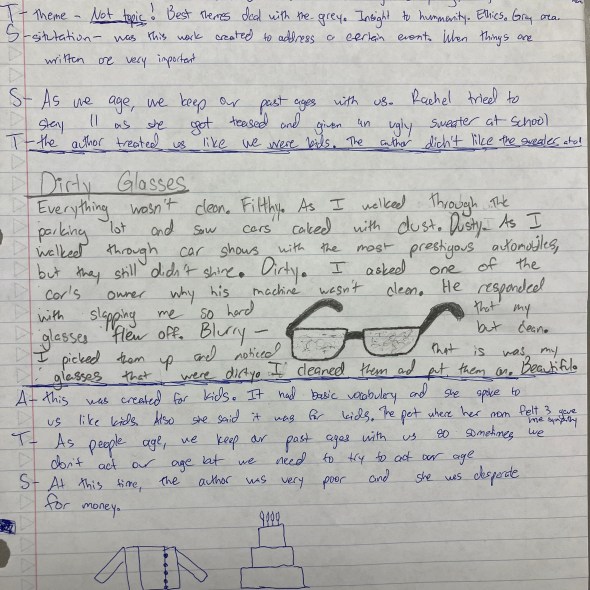 T- theme - Not topic! Best themes deal with the grey. Insight to hummanity. Ethics. Gray area
S- situtation - was this work created to address a certain event. When things are
written are very important
S- As we age, we keep our past ages with us. Rachel tried to
stay 11 as she got teased and given an ugly sweater at school
T- the author treated us like we were kids. The author didn't like the sweater
Dirty Glasses
Everything wasn't clean. Filthy. As I walked through the
parking lot and saw cars caked with dust. Dusty. As I
walked through car shows with the most prestigous automobiles,
but they still didn't shine. Dirty. I asked one of the
car's owner why his machine wasn't clean. He responded
with slapping me so hard that my
glasses flew off. Blurry - but clean.
I picked them up and noticed that is was my
glasses that were dirty. I cleaned them and put them on. Beautiful.
A- this was created for kids. It had basic vocabulary and she spoke to
us like kids. Also she said it was for kids. The pet where her mom felt 3 gave
me sympathy
T- As people age, we keep our past ages with us so sometimes we
don't act our age but we need to try to act our age
S- At this time, the author was very poor and she was desperate
for money.